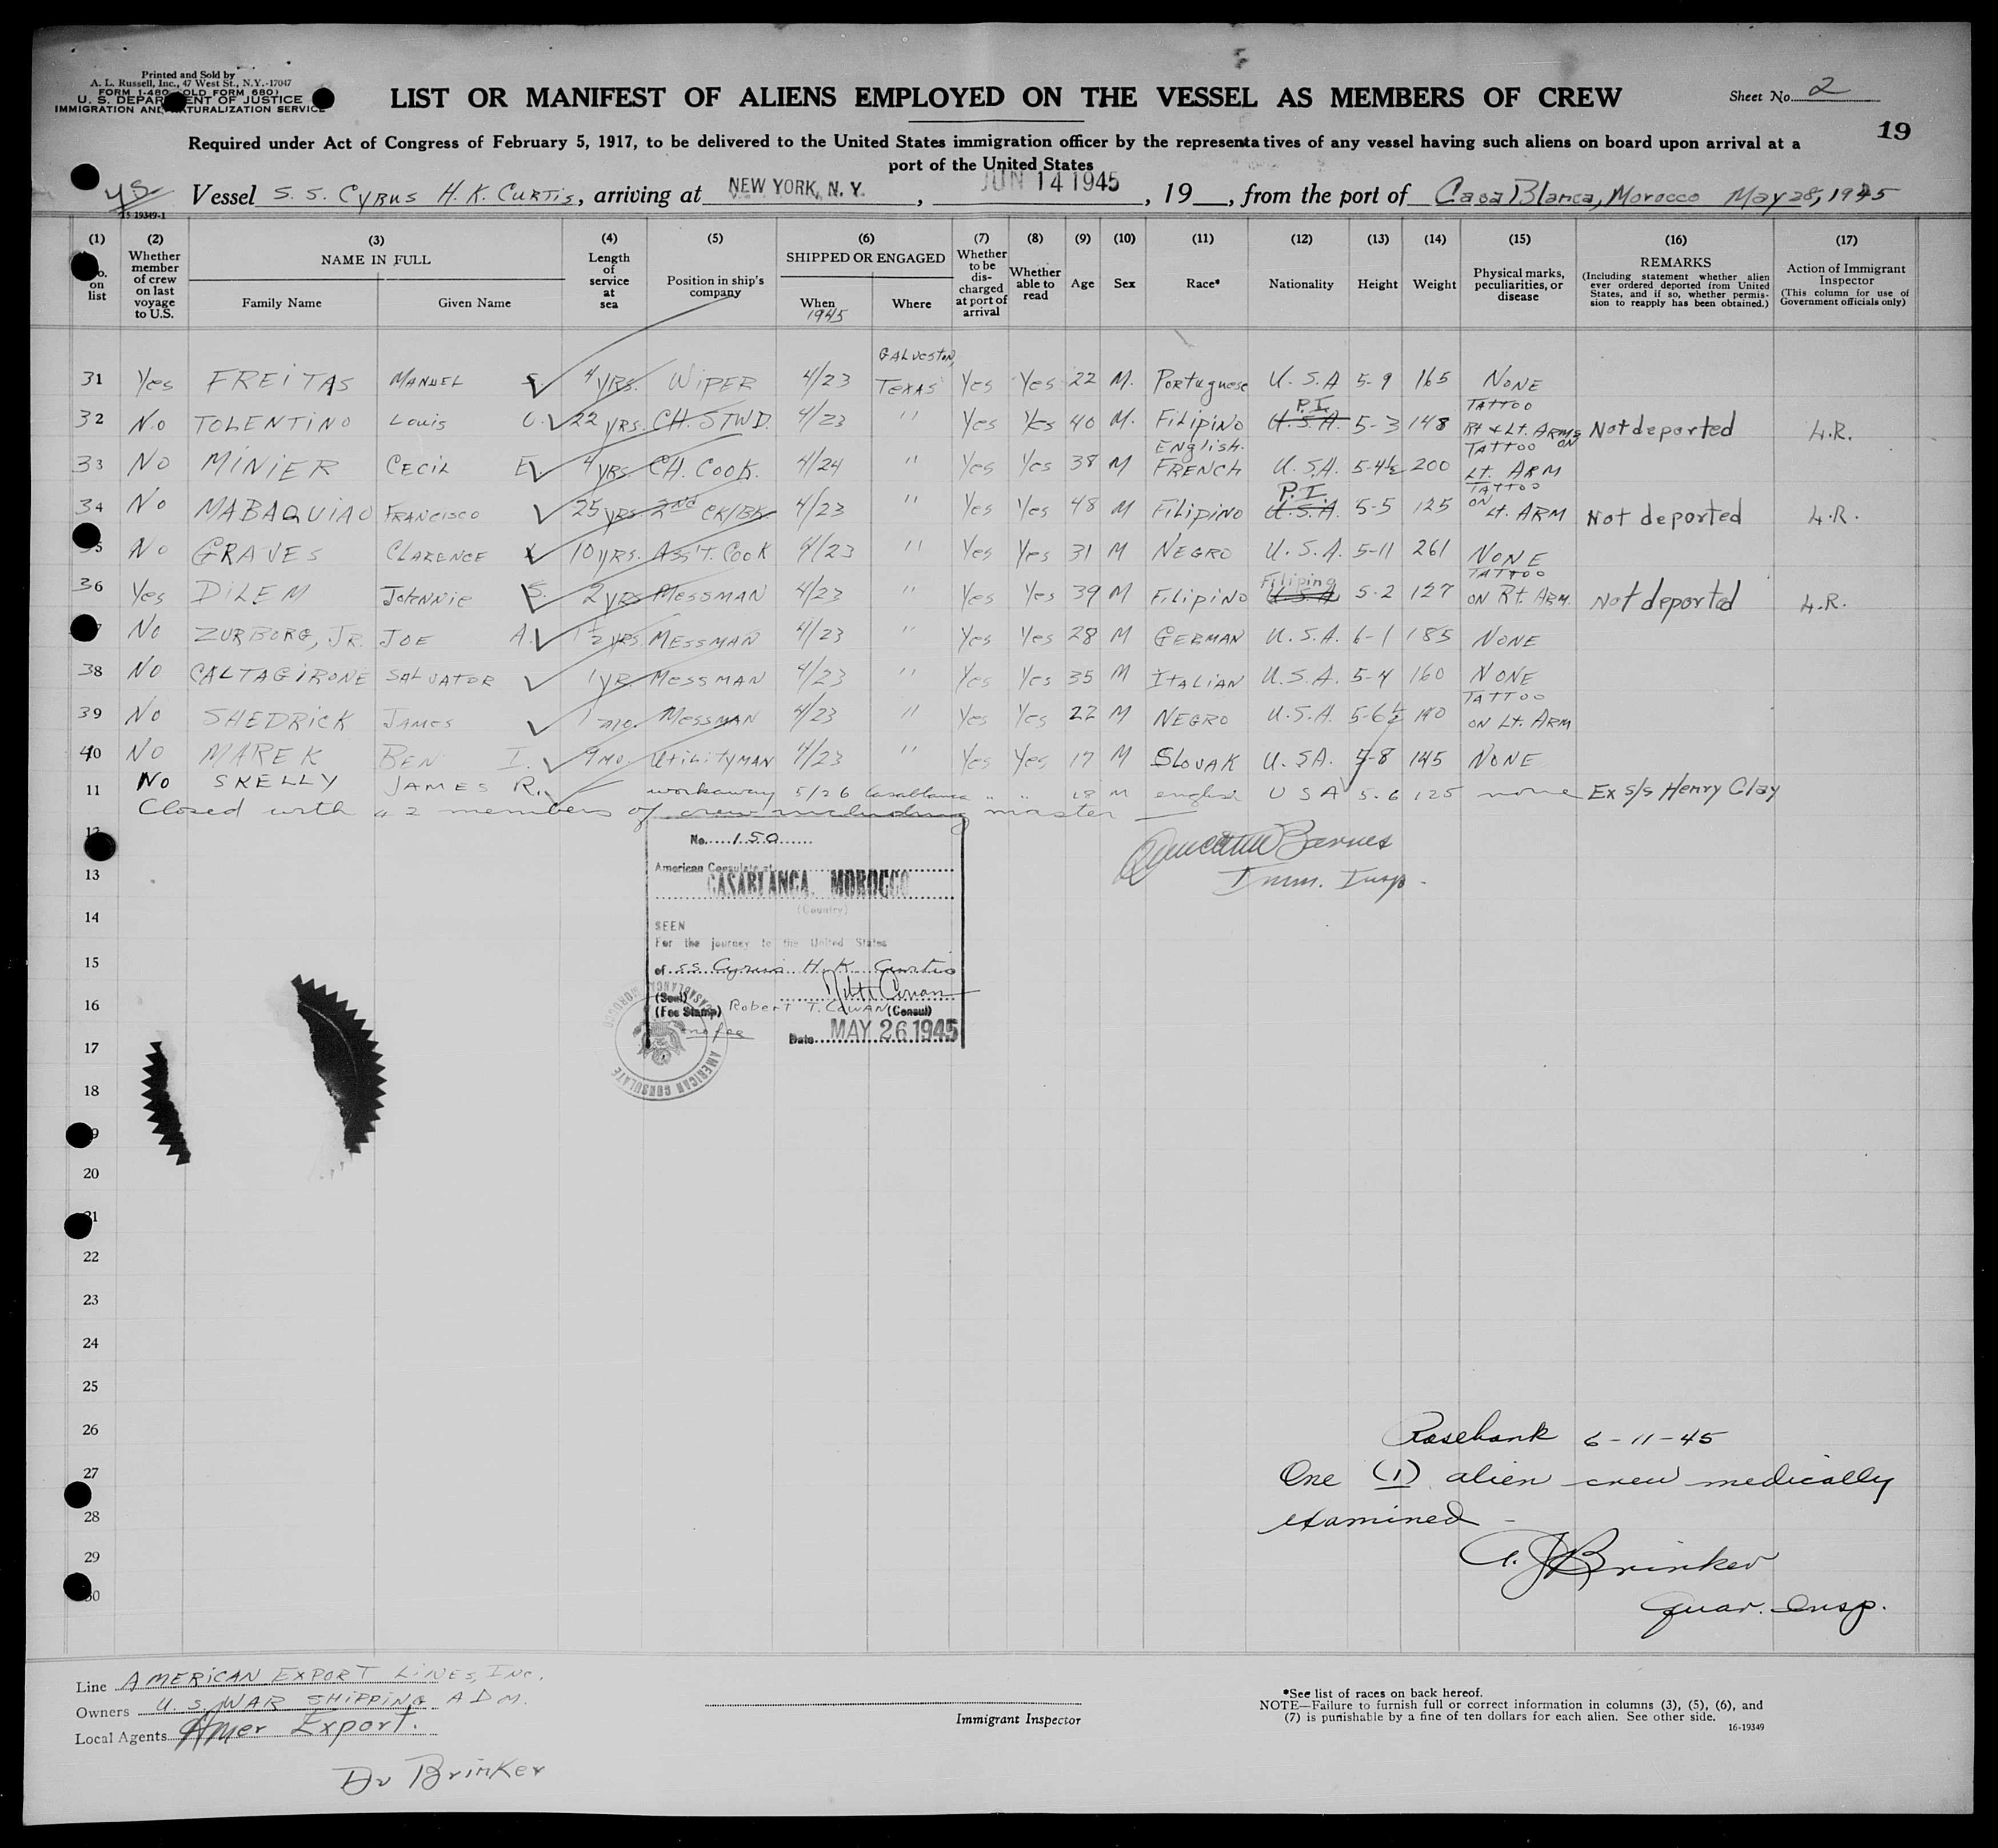 Printed and Sold by
A. L. Russell, Inc., 47 West St., N.Y.-17047
FORM I-480 (OLD FORM 680)
U. S. DEPARTMENT OF JUSTICE
IMMIGRATION AND NATURALIZATION SERVICE
LIST OR MANIFEST OF ALIENS EMPLOYED ON THE VESSEL AS MEMBERS OF CREW
Sheet No. 2
19
Required under Act of Congress of February 5, 1917, to be delivered to the United States immigration officer by the representatives of any vessel having such aliens on board upon arrival at a
port of the United States
Vessel S. S. CYRUS H. K. CURTIS, arriving at NEW YORK, N. Y., JUN 14 1945, 19__, from the port of CasaBlanca, Morocco May 28, 1945
15 19349-1
(1) No. on list
(2) Whether member of crew on last voyage to U.S.
(3) NAME IN FULL Family Name Given Name
(4) Length of service at sea
(5) Position in ship's company
(6) SHIPPED OR ENGAGED When 1945 Where
(7) Whether to be discharged at port of arrival
(8) Whether able to read
(9) Age
(10) Sex
(11) Race*
(12) Nationality
(13) Height
(14) Weight
(15) Physical marks, peculiarities, or disease
(16) REMARKS (Including statement whether alien ever ordered deported from United States, and if so, whether permission to reapply has been obtained.)
(17) Action of Immigrant Inspector (This column for use of Government officials only)
31 Yes FREITAS MANUEL S 4 YRS. WIPER 4/23 GALVESTON, TEXAS Yes Yes 22 M. Portuguese U. S. A 5-9 165 NONE
32 No TOLENTINO Louis O. 22 YRS. CH. STWD. 4/23 " Yes Yes 40 M. FILIPINO U.S.A. P.I. 5-3 148 TATTOO Rt & Lt. ARMS Not deported L.R.
33 NO MINIER CECIL E 4 YRS. CH. COOK. 4/24 " Yes Yes 38 M English. FRENCH U. S.A. 5-4½ 200 TATTOO ON Lt. ARM
34 No MABAQUIAO FRANCISCO 25 YRS 2ND CK/BK 4/23 " Yes Yes 48 M FILIPINO U.S.A. P.I. 5-5 125 TATTOO ON Lt. ARM Not deported L.R.
35 No GRAVES CLARENCE 10 YRS. ASS'T. COOK 4/23 " Yes Yes 31 M NEGRO U. S. A. 5-11 261 NONE
36 Yes DILEM JOHNNIE S. 2 YRS MESSMAN 4/23 " Yes Yes 39 M FILIPINO U.S.A Filipino 5-2 127 TATTOO ON Rt. ARM. Not deported L.R.
No ZURBORG, JR. JOE A. 1½ YRS. MESSMAN 4/23 " Yes Yes 28 M GERMAN U. S. A. 6-1 185 NONE
38 NO CALTAGIRONE SALVATOR 1 YR. MESSMAN 4/23 " Yes Yes 35 M ITALIAN U. S. A. 5-4 160 NONE
39 No SHEDRICK JAMES 1 mo. MESSMAN 4/23 " Yes Yes 22 M NEGRO U.S.A. 5-6½ TATTOO ON Lt. ARM
40 NO MAREK BEN I. 9 MO UTILITYMAN 4/23 " Yes Yes 17 M SLOVAK U. SA. 5-8 145 NONE
11 No SKELLY JAMES R. workaway 5/26 Casablanca " " 18 M english U S A 5-6 125 none Ex s/s Henry Clay
Closed with 42 members of crew including master
12
Barnes
Imm. Insp.
No. 150
American Consulate at
CASABLANCA, MOROCCO
(Country)
SEEN
For the journey to the United States
of SS Cyrus H. K. Curtis
(Seal)
(Fee Stamp) Robert T. COWAN (Consul)
no fee
Date MAY 26 1945
CASABLANCA MOROCCO
AMERICAN CONSULATE
13
14
15
16
17
18
19
20
21
22
23
24
25
26
27
28
29
30
Rosebank 6-11-45
One (1) alien crew medically
examined
A. J Brinker
Quar. Insp.
Line AMERICAN EXPORT LINES, INC.
Owners U. S. WAR SHIPPING ADM.
Local Agents Amer Export.
Dr Brinker
Immigrant Inspector
*See list of races on back hereof.
NOTE—Failure to furnish full or correct information in columns (3), (5), (6), and
(7) is punishable by a fine of ten dollars for each alien. See other side.
16-19349